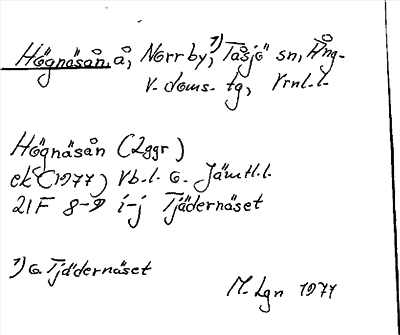 Högnäsån, å, Norrby, ¹) Tåsjö sn, Ång-
v. doms. tg, Vrnl. l.
Högnäsån (2 ggr)
ek (1977) Vb. l. o. Jämtl. l.
21F 8-9 i-j Tjädernäset
¹) o. Tjädernäset
M. Lgn 1977